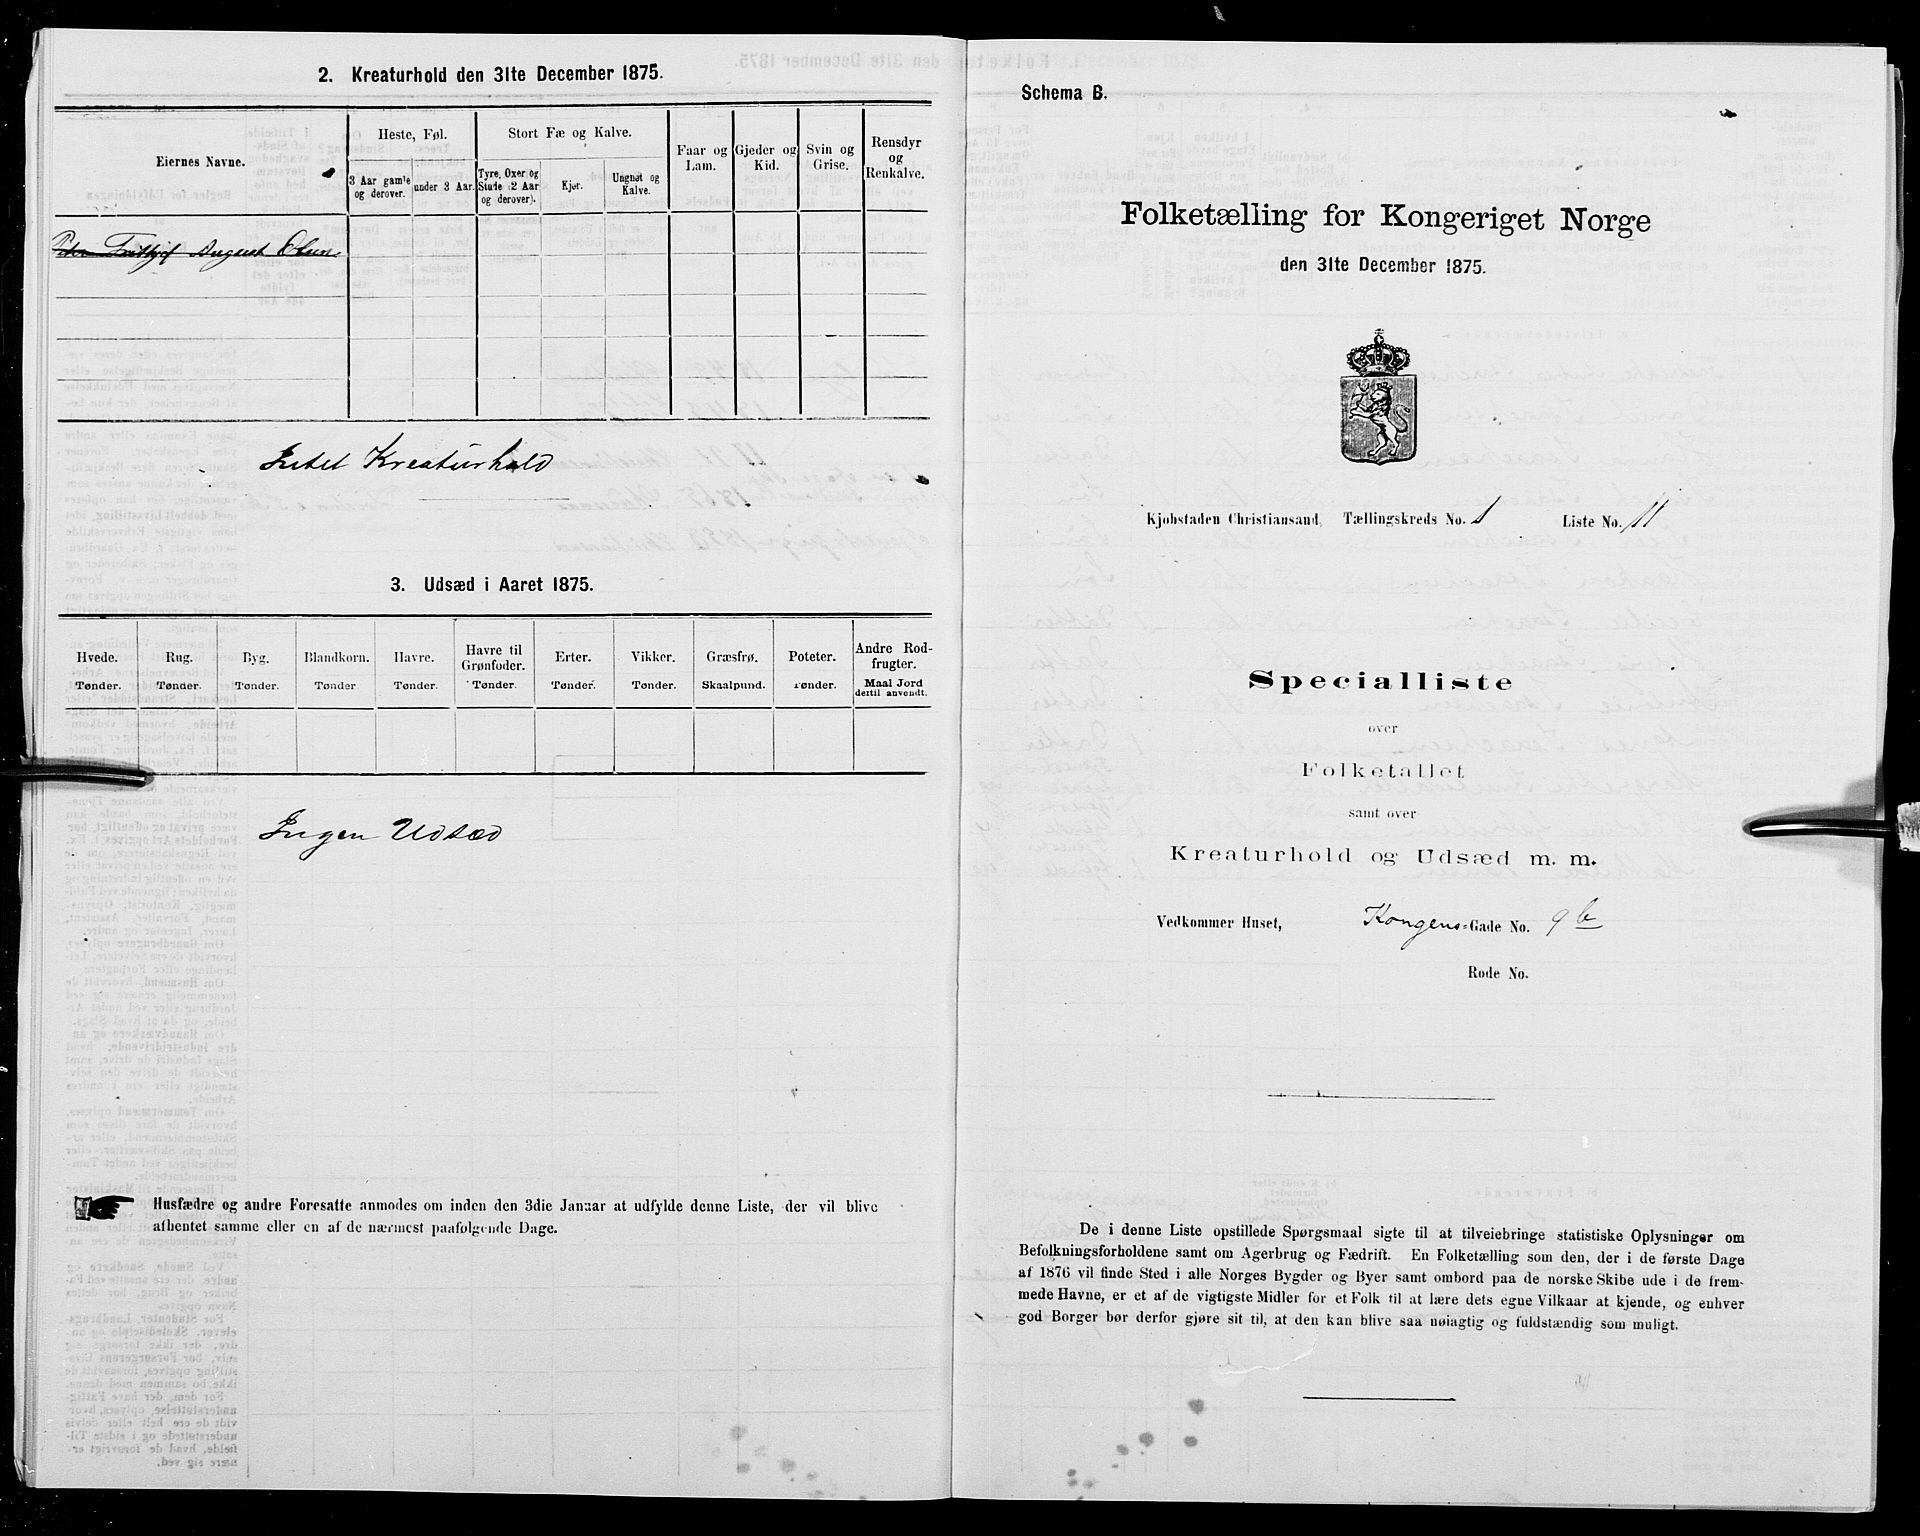 2. Kreaturhold den 31te December 1875.
Eiernes Navne.
Heste, Føl.
3 Aar gamle og derover.
under 3 Aar.
Stort Fæ og Kalve.
Tyre, Oxer og Stude (2 Aar og derover).
Kjør.
Ungnøt og Kalve.
Faar og Lam.
Gjeder og Kid.
Svin og Grise.
Rensdyr og Renkalve.
August Olsen
Intet Kreaturhold
3. Udsæd i Aaret 1875.
Hvede. Rug. Byg. Blandkorn. Havre. Havre til Grønfoder. Erter. Vikker. Græsfrø. Poteter. Andre Rodfrugter.
Tønder. Tønder. Tønder. Tønder Tønder. Tønder. Tønder. Tønder. Skaalpund. Tønder. Maal Jord dertil anvendt.
Ingen Udsæd
Husfædre og andre Foresatte anmodes om inden den 3die Januar at udfylde denne Liste, der vil blive
afhentet samme eller en af de nærmest paafølgende Dage.
Schema B.
Folketælling for Kongeriget Norge
den 31te December 1875.
Kjøbstaden Christiansand, Tællingskreds No. 1 Liste No. 11
Specialliste
over
Folketallet
samt over
Kreaturhold og Udsæd m. m.
Vedkommer Huset, Kongens Gade No. 9b
Rode No.
De i denne Liste opstillede Spørgsmaal sigte til at tilveiebringe statistiske Oplysninger om
Befolkningsforholdene samt om Agerbrug og Fædrift. En Folketælling som den, der i de første Dage
af 1876 vil finde Sted i alle Norges Bygder og Byer samt ombord paa de norske Skibe ude i de frem-
mede Havne, er et af de vigtigste Midler for et Folk til at lære dets egne Vilkaar at kjende, og enhver
god Borger bør derfor gjøre sit til, at den kan blive saa nøiagtig og fuldstændig som muligt.